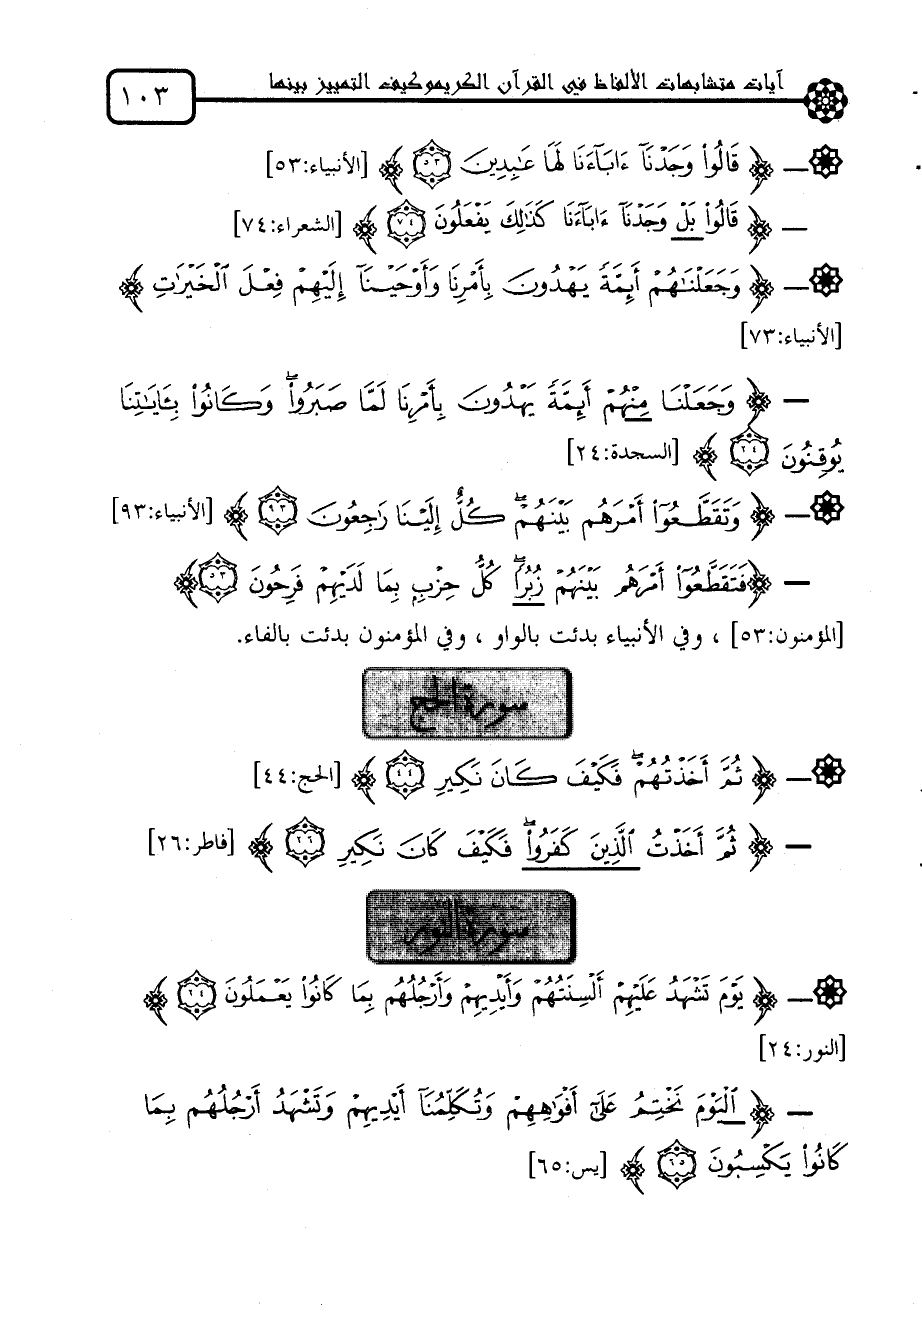 آيات متشابهات الألفاظ في القرآن الكريم وكيف التمييز بينها
١٠٣
— ﴿ قَالُوا۟ وَجَدْنَآ ءَابَآءَنَا لَهَا عَـٰبِدِينَ ٥٣ ﴾ [الأنبياء:٥٣]
— ﴿ قَالُوا۟ بَلْ وَجَدْنَآ ءَابَآءَنَا كَذَٰلِكَ يَفْعَلُونَ ٧٤ ﴾ [الشعراء:٧٤]
— ﴿ وَجَعَلْنَـٰهُمْ أَئِمَّةً يَهْدُونَ بِأَمْرِنَا وَأَوْحَيْنَآ إِلَيْهِمْ فِعْلَ الْخَيْرَٰتِ ﴾
[الأنبياء:٧٣]
— ﴿ وَجَعَلْنَا مِنْهُمْ أَئِمَّةً يَهْدُونَ بِأَمْرِنَا لَمَّا صَبَرُوا۟ ۖ وَكَانُوا۟ بِـَٔايَـٰتِنَا
يُوقِنُونَ ٢٤ ﴾ [السجدة:٢٤]
— ﴿ وَتَقَطَّعُوٓا۟ أَمْرَهُم بَيْنَهُمْ ۖ كُلٌّ إِلَيْنَا رَٰجِعُونَ ٩٣ ﴾ [الأنبياء:٩٣]
— ﴿ فَتَقَطَّعُوٓا۟ أَمْرَهُم بَيْنَهُمْ زُبُرًا ۖ كُلُّ حِزْبٍۭ بِمَا لَدَيْهِمْ فَرِحُونَ ٥٣ ﴾
[المؤمنون:٥٣] ، وفي الأنبياء بدئت بالواو ، وفي المؤمنون بدئت بالفاء.
سورة الحج
— ﴿ ثُمَّ أَخَذْتُهُمْ ۖ فَكَيْفَ كَانَ نَكِيرِ ٤٤ ﴾ [الحج:٤٤]
— ﴿ ثُمَّ أَخَذْتُ الَّذِينَ كَفَرُوا۟ ۖ فَكَيْفَ كَانَ نَكِيرِ ٢٦ ﴾ [فاطر:٢٦]
سورة النور
— ﴿ يَوْمَ تَشْهَدُ عَلَيْهِمْ أَلْسِنَتُهُمْ وَأَيْدِيهِمْ وَأَرْجُلُهُم بِمَا كَانُوا۟ يَعْمَلُونَ ٢٤ ﴾
[النور:٢٤]
— ﴿ الْيَوْمَ نَخْتِمُ عَلَىٰٓ أَفْوَٰهِهِمْ وَتُكَلِّمُنَآ أَيْدِيهِمْ وَتَشْهَدُ أَرْجُلُهُم بِمَا
كَانُوا۟ يَكْسِبُونَ ٦٥ ﴾ [يس:٦٥]